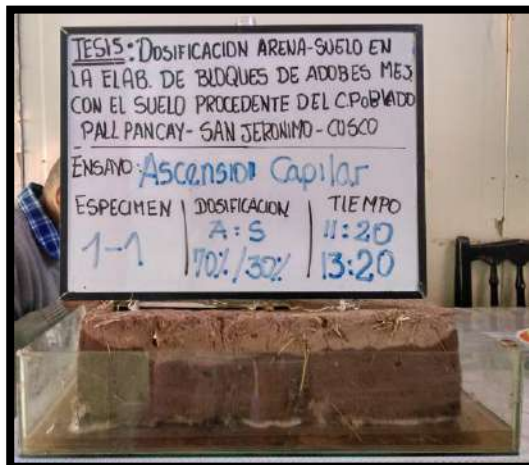 TESIS: DOSIFICACION ARENA-SUELO EN
LA ELAB. DE BLOQUES DE ADOBES MEJ
CON EL SUELO PROCEDENTE DEL C.POBLADO
PALLPANCAY- SAN JERONIMO - CUSCO
ENSAYO: Ascension Capilar
ESPECIMEN | DOSIFICACION | TIEMPO
1-1 | A:S | 11:20
70% / 30% | 13:20